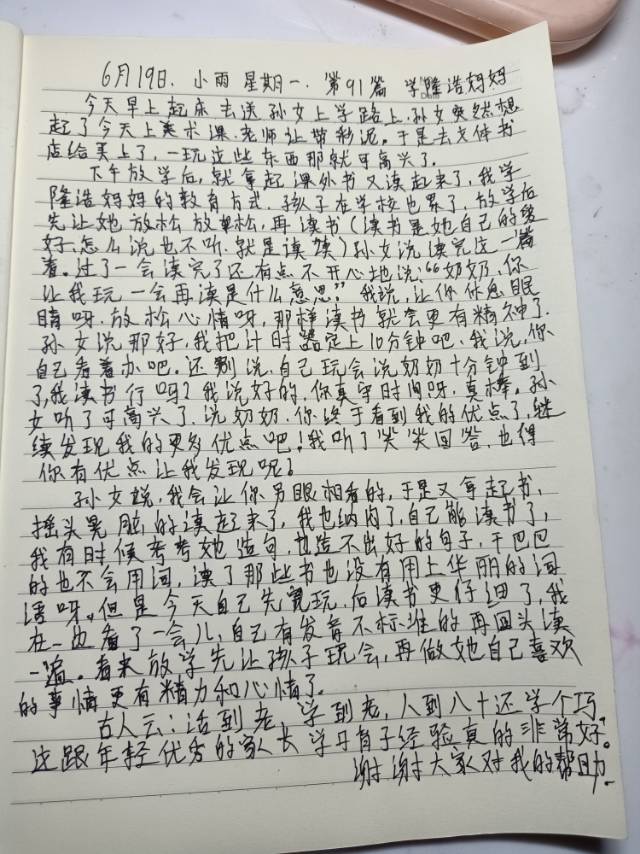 6月19日. 小雨 星期一. 第91篇 学隆浩妈妈
今天早上起床去送孙女上学路上.孙女突然想
起了今天上美术课.老师让带彩泥.于是去文体书
店给买上了,一玩这些东西那就可高兴了.
下午放学后,就拿起课外书又读起来了,我学
隆浩妈妈的教育方式.孩子在学校也累了.放学后
先让她放松放松,再读书(读书是她自己的爱
好,怎么说也不听.就是读读)孙女说读完这一篇
着.过了一会读完了还有点不开心地说:“奶奶,你
让我玩一会再读是什么意思?”我说,让你休息眼
睛呀.放松心情呀,那样读书就会更有精神了.
孙女说那好,我把计时器定上10分钟吧.我说,你
自己看着办吧.还别说.自己玩会说奶奶十分钟到
了,我读书行吗?我说好的.你真守时间呀.真棒.孙
女听了可高兴了.说奶奶.你终于看到我的优点了,继
续发现我的更多优点吧!我听了笑笑回答.也得
你有优点让我发现呢?
孙女说,我会让你另眼相看的,于是又拿起书,
摇头晃脑的读起来了,我也纳闷了,自己能读书了,
我有时候考考她造句.也造不出好的句子,干巴巴
的也不会用词,读了那些书也没有用上华丽的词
语呀.但是今天自己先玩.后读书更仔细了,我
在一边看了一会儿,自己有发音不标准的再回头读
一遍.看来放学先让孩子玩会,再做她自己喜欢
的事情更有精力和心情了.
古人云:活到老,学到老,人到八十还学个巧,
这跟年轻优秀的家长学习育子经验真的非常好。
谢谢大家对我的帮助.